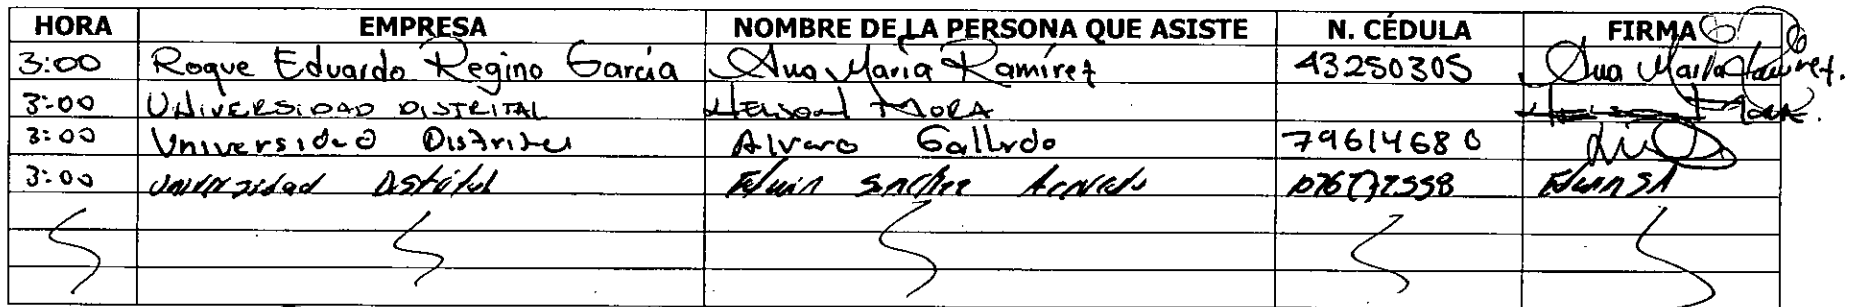 HORA EMPRESA NOMBRE DE LA PERSONA QUE ASISTE N. CÉDULA FIRMA
3:00 Roque Eduardo Regino Garcia Ana Maria Ramirez 43250305 Ana Maria Ramirez.
3:00 UNIVERSIDAD DISTRITAL NELSON MORA MORA.
3:00 Universidad Distrital Alvaro Gallrdo 79614680
3:00 Universidad Distrital Edwin Sanchez Edwin SA